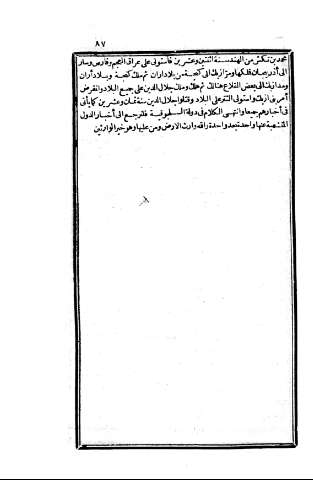 ٨٧
محمد بن تكش من الهند سنة اثنتين وعشرين فاستولى على عراق العجم وفارس وسار
الى أذربيجان فلكها ومر ازبك الى كنجة من بلاد اران ثم ملك كنجة وبلاد أران
ومر ازبك الى بعض القلاع هنالك ثم هلك وملك جلال الدين على جميع البلاد وانقرض
أمر بنى ازبك واستولى التتر على البلاد وقتلوا جلال الدين سنة ثمان وعشرين كما يأتى
فى أخبارهم جميعا وانتهى الكلام فى دولة السلجوقية فلنرجع الى أخبار الدول
المتشعبة عنها واحدة بعد واحدة والله وارث الارض ومن عليها وهو خير الوارثين